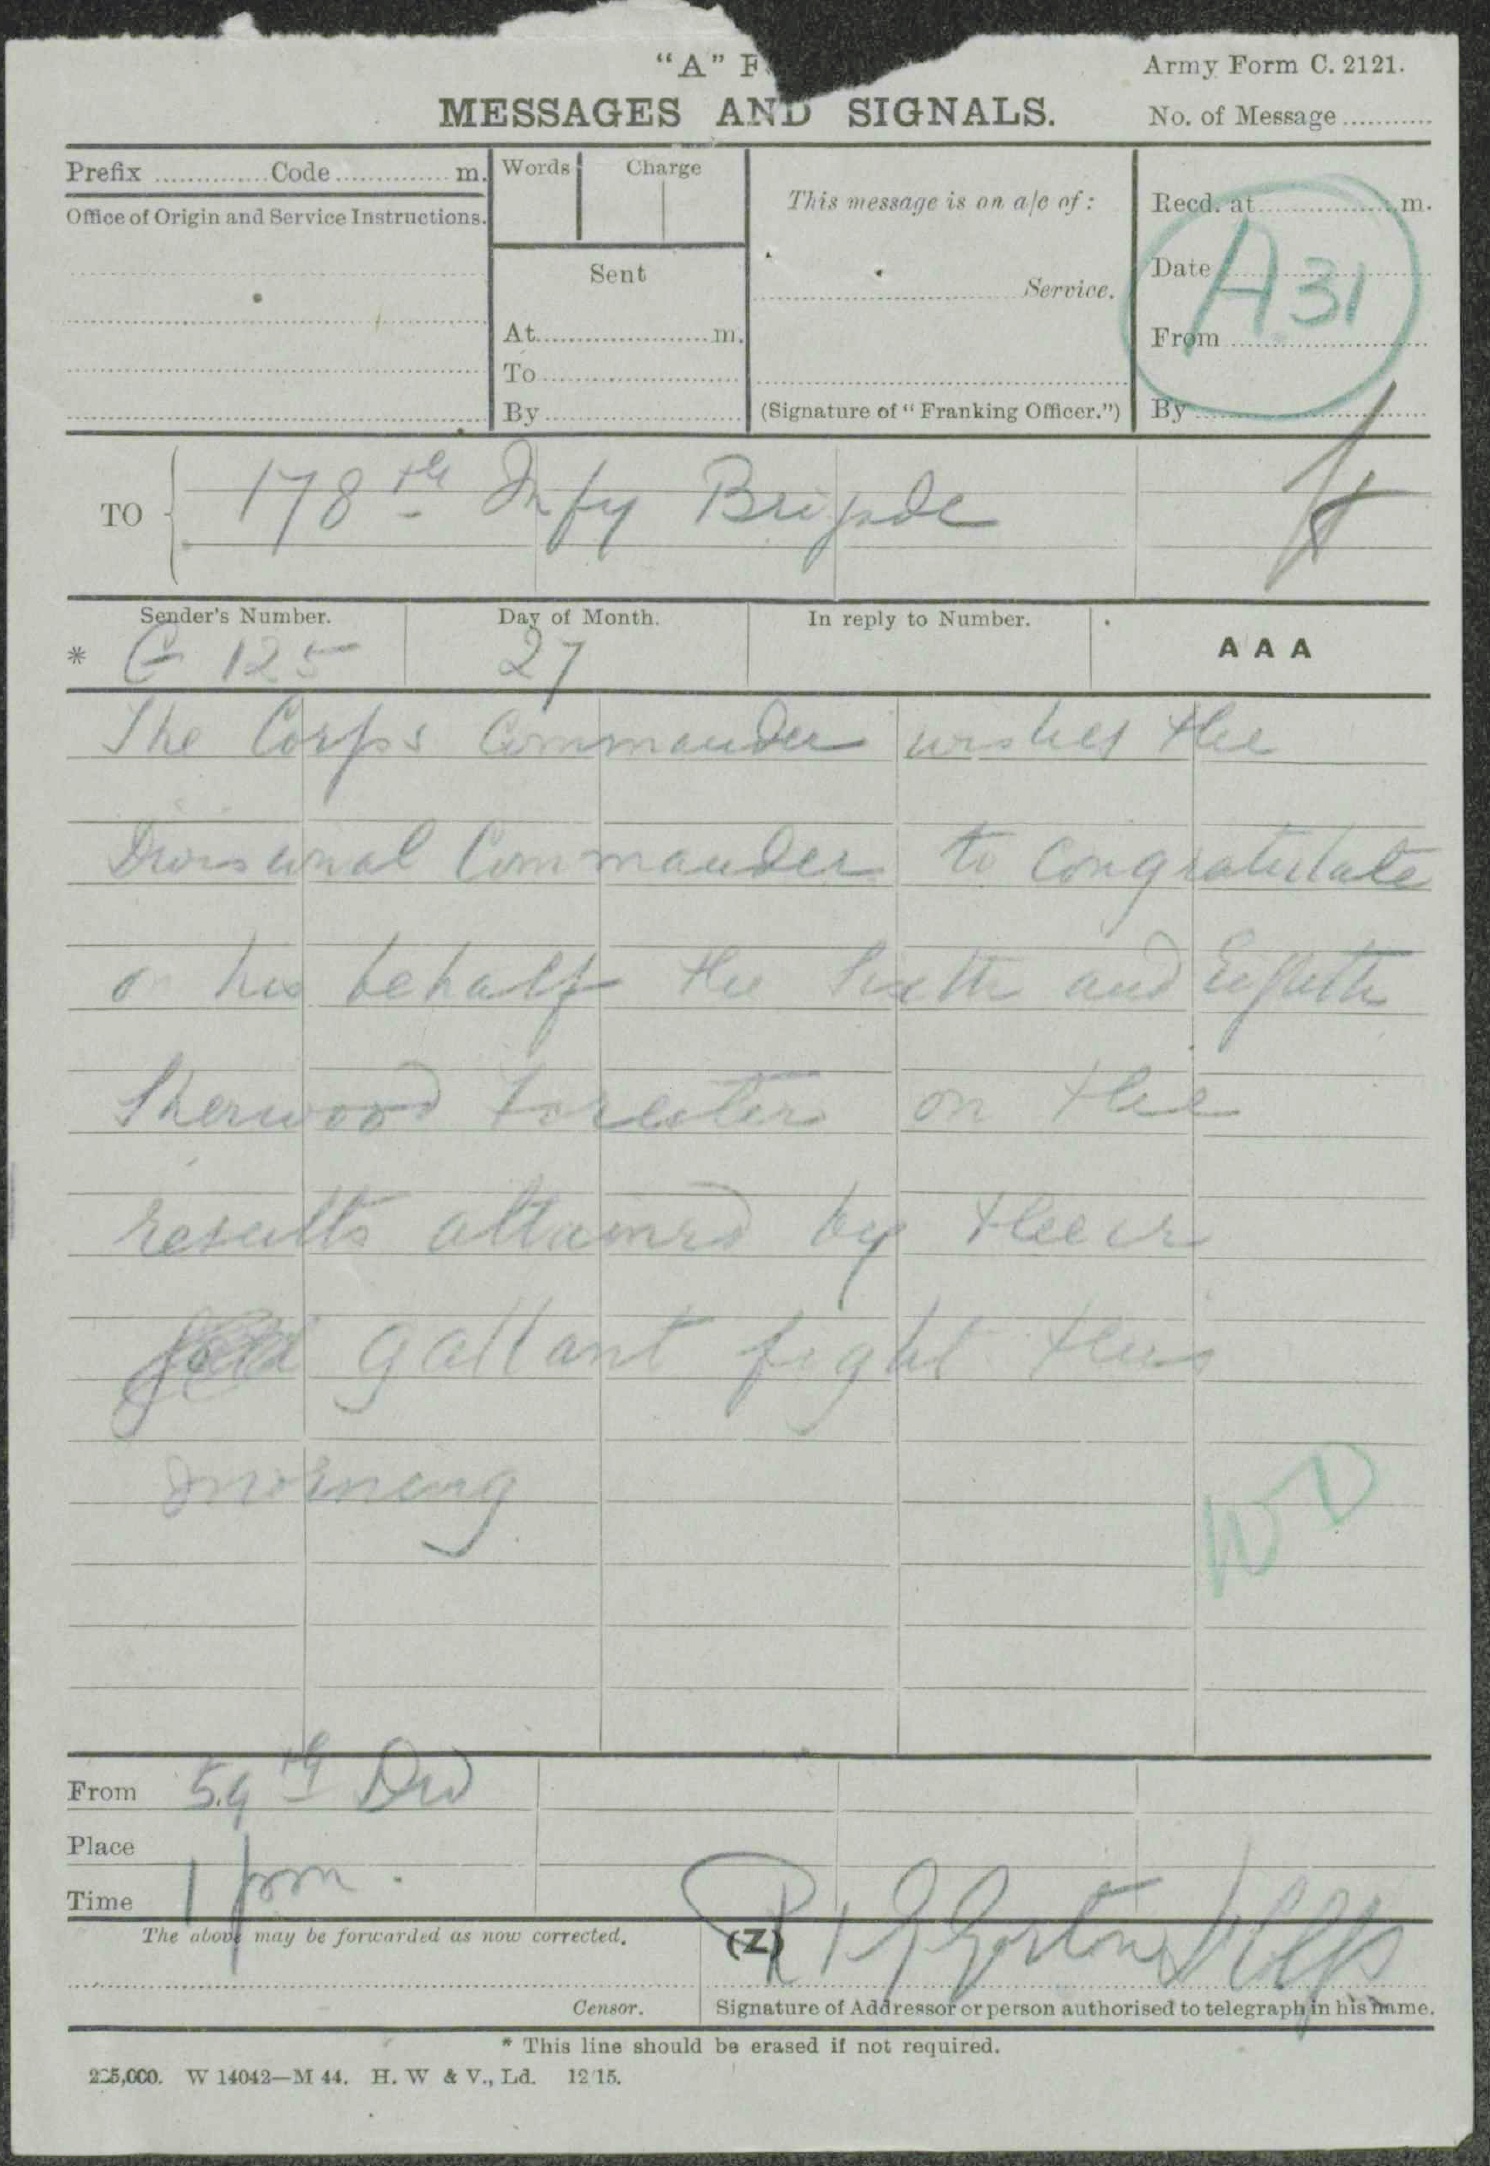 "A" F
Army Form C. 2121.
MESSAGES AND SIGNALS.
No. of Message ...........
Prefix .............. Code .............. m.
Words
Charge
This message is on a/c of :
Recd. at .................. m.
Office of Origin and Service Instructions.
Sent
Date
A31
Service.
At ...................... m.
From
To
By
(Signature of "Franking Officer.")
By
TO
178th Infy Brigade
Sender's Number.
Day of Month.
In reply to Number.
AAA
* G 125
27
The Corps Commander wishes the
Divisional Commander to congratulate
on his behalf the Sixth and Eighth
Sherwood Foresters on the
results attained by their
gallant fight this
morning
WD
From 59th Div
Place
Time 1 pm.
The above may be forwarded as now corrected.
(Z)
Censor.
Signature of Addressor or person authorised to telegraph in his name.
* This line should be erased if not required.
225,000. W 14042—M 44. H. W & V., Ld. 12/15.